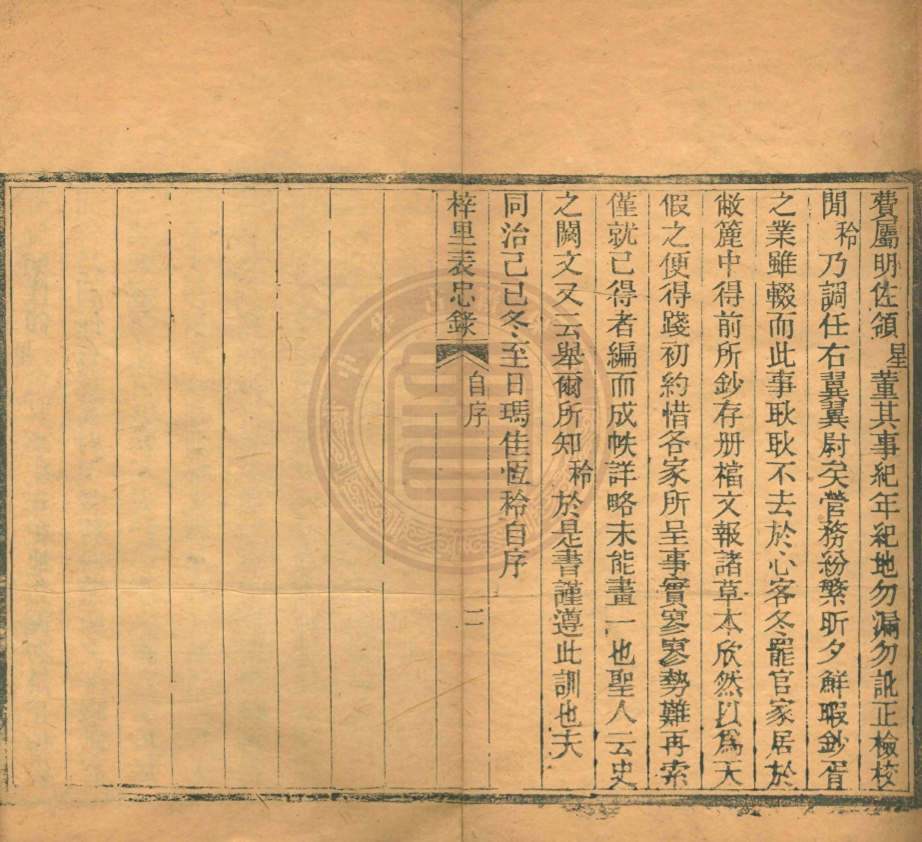 費屬明佐領星董其事紀年紀地勿漏勿訛正檢校
聞秢乃調任右翼翼尉矣營務紛繁昕夕鮮暇鈔胥
之業雖輟而此事耿耿不去於心客冬罷官家居於
敝簏中得前所鈔存册檔文報諸草本欣然以爲天
假之便得踐初約惜各家所呈事實寥寥勢難再索
僅就已得者編而成帙詳略未能畫一也聖人云史
之闕文又云舉爾所知秢於是書謹遵此訓也夫
同治己巳冬至日瑪佳恆秢自序
梓里表忠錄 自序 二